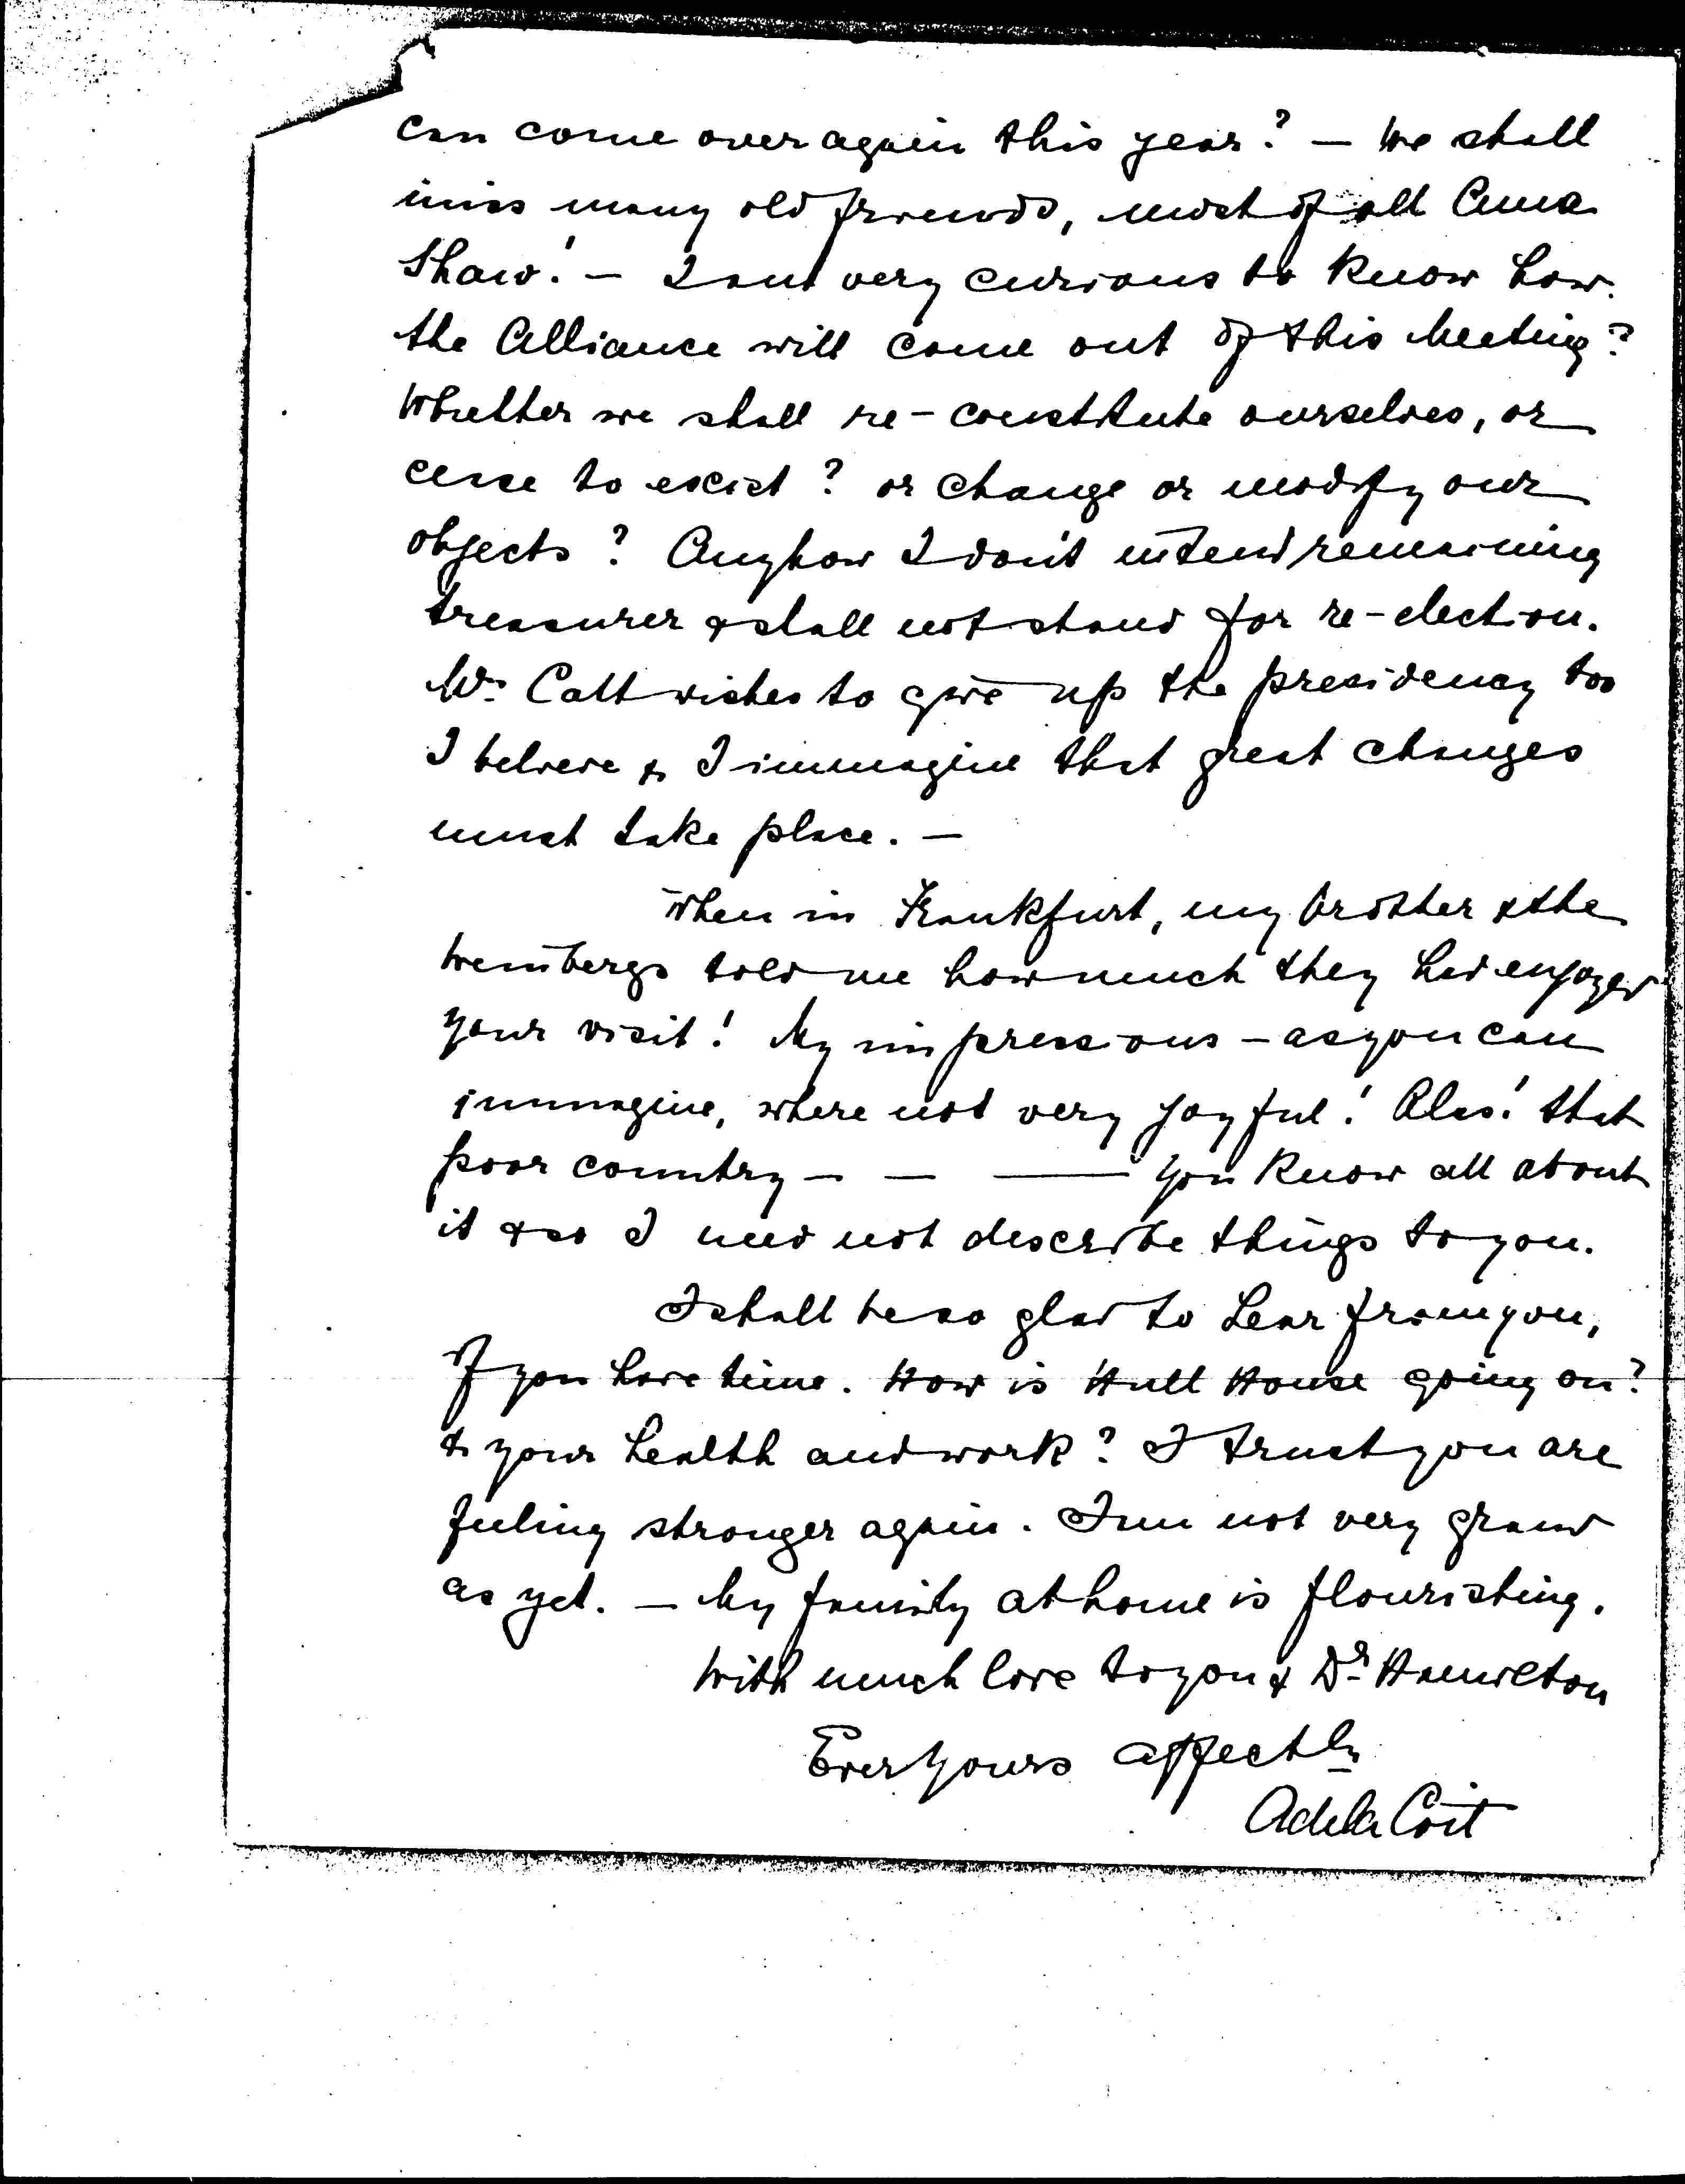 can come over again this year? — We shall
miss many old friends, most of all Anna
Shaw! — I am very curious to know how
the Alliance will come out of this Meeting?
Whether we shall re-constitute ourselves, or
cease to excist? or change or modify our
objects? Anyhow I don't intend remaining
treasurer & shall not stand for re-election.
Mrs Catt wishes to give up the presidency too
I believe & I immagine that great changes
must take place. —
When in Frankfurt, my brother & the
Weinbergs told me how much they had enjoyed
your visit! My impressions — as you can
immagine, where not very joyful! Alas! that
poor country — — — you know all about
it & so I need not describe things to you.
I shall be so glad to hear from you,
If you have time. How is Hull House going on?
& your health and work? I trust you are
feeling stronger again. I'm not very grand
as yet. — My family at home is flourishing.
With much love to you & Dr Hamilton
Ever yours affectly
Adela Coit